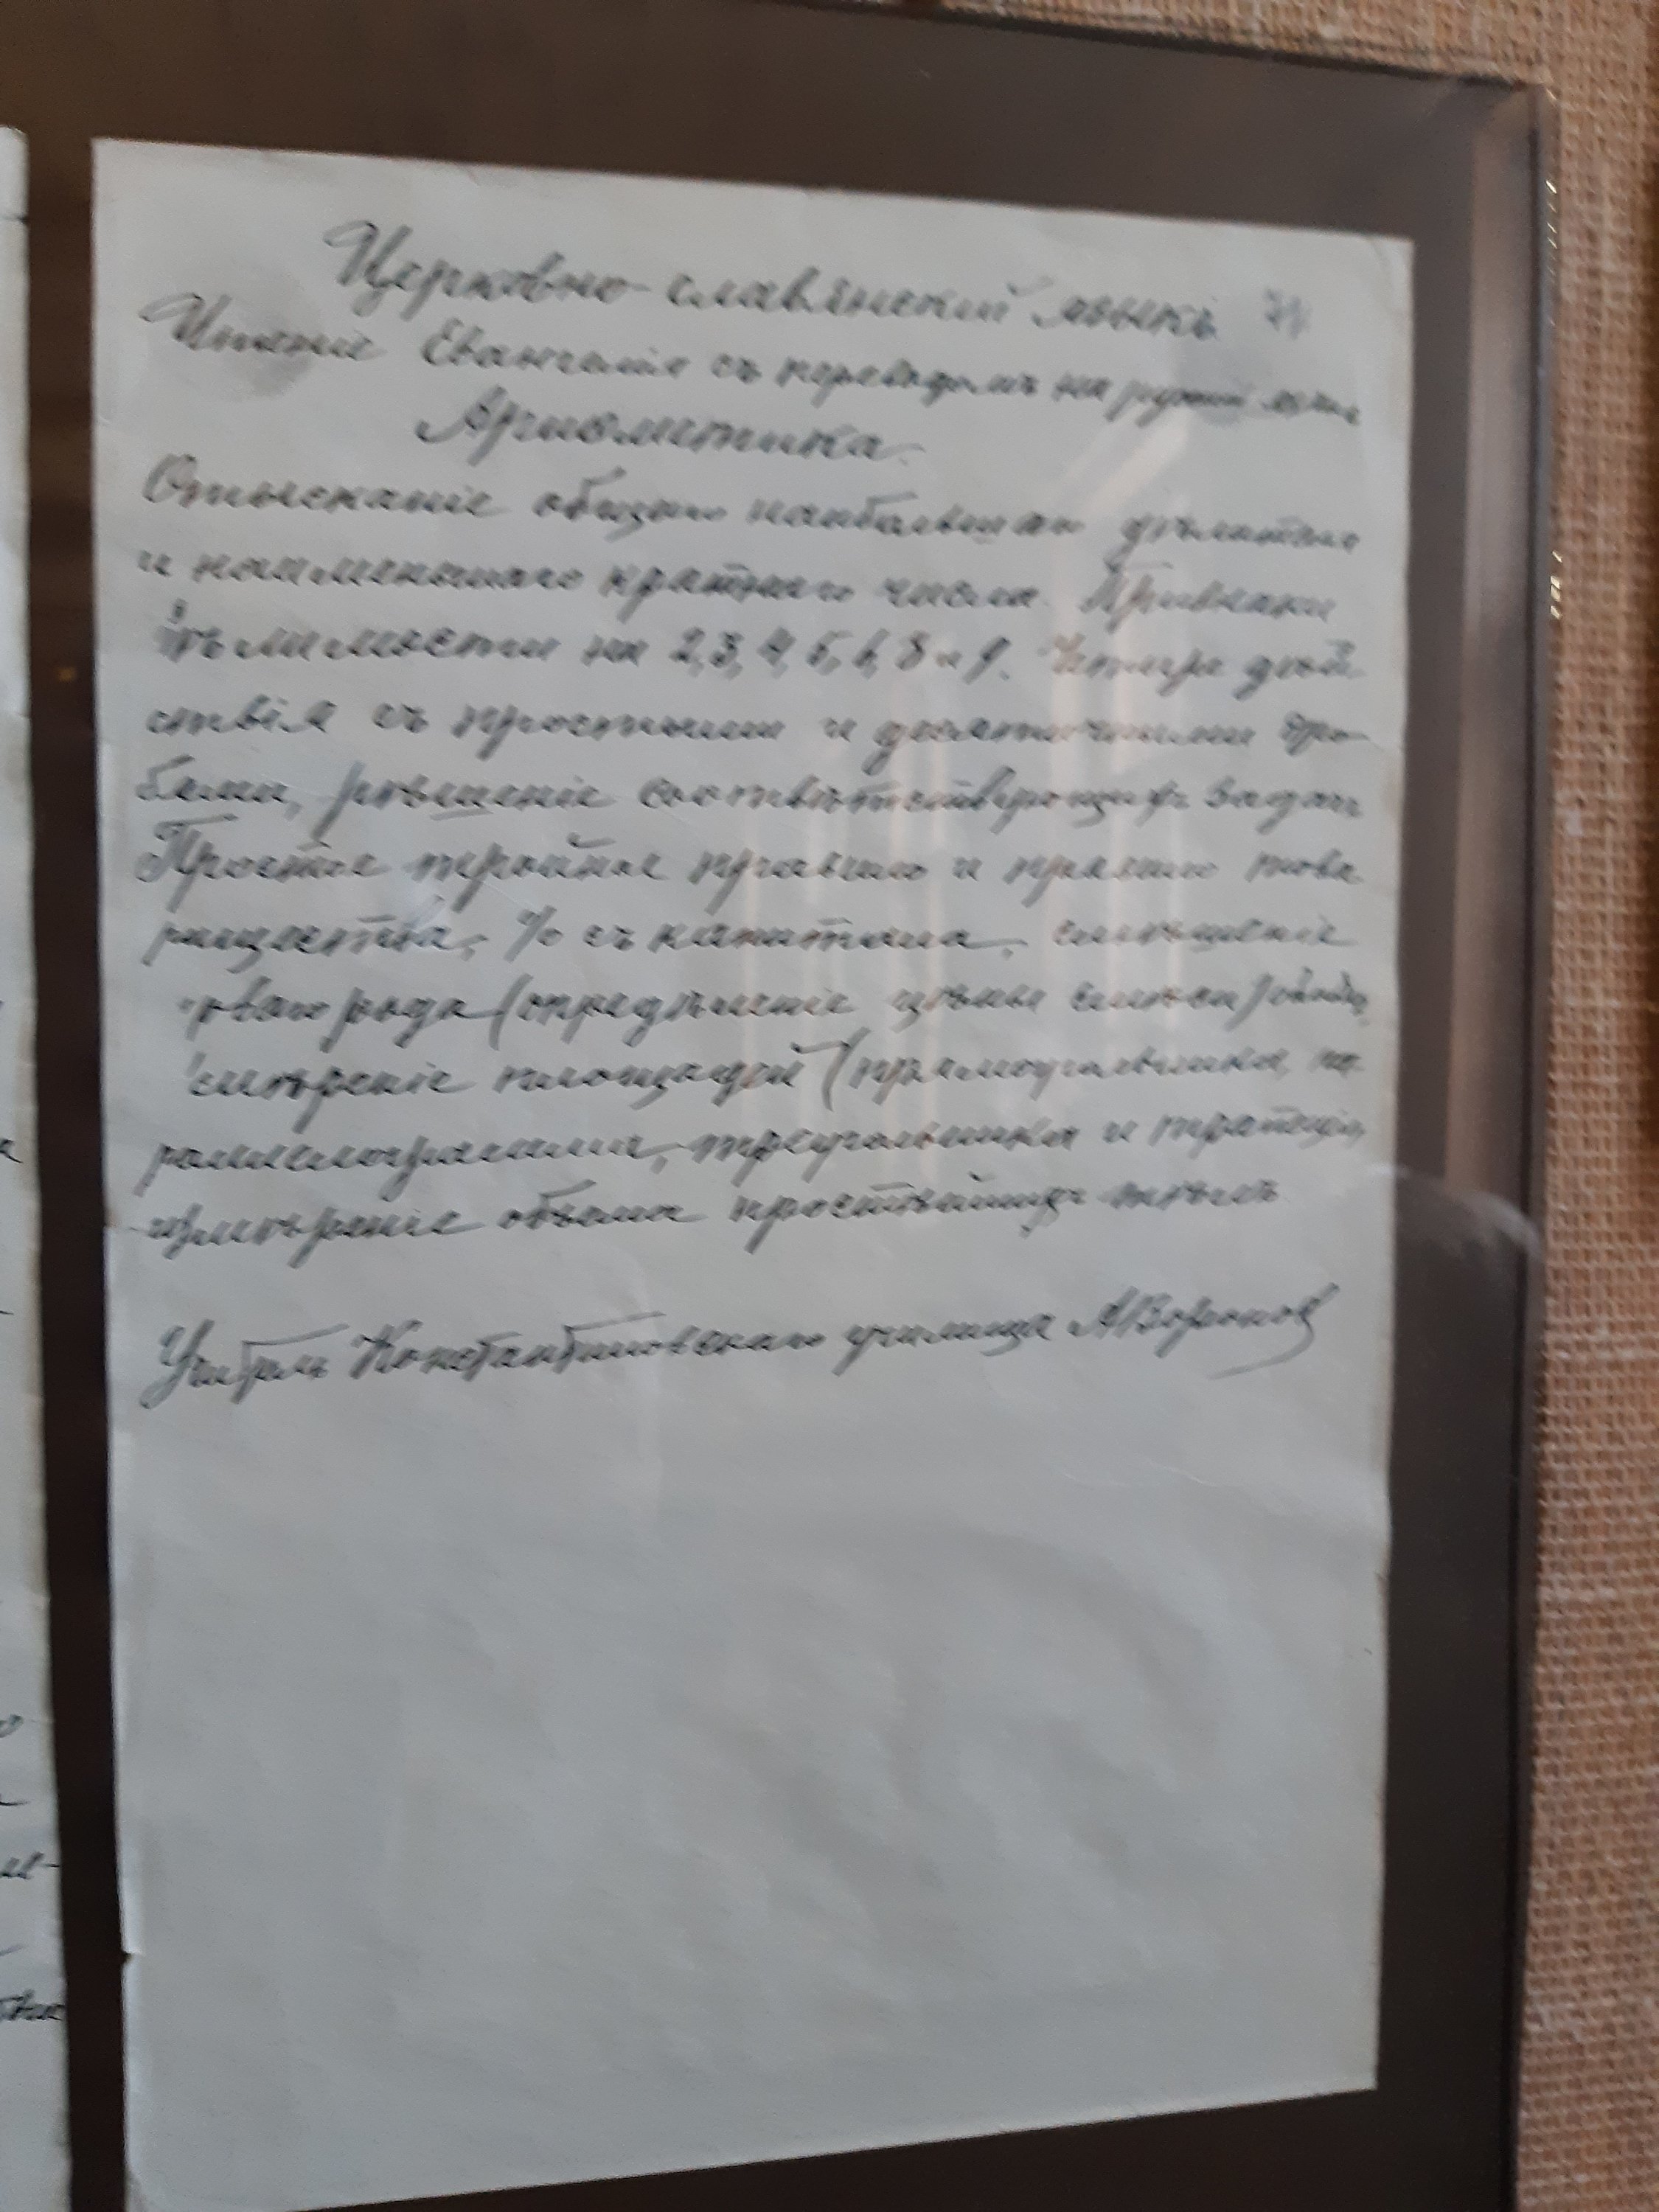 Церковно-славянскій языкъ
Чтеніе Евангелія съ переводомъ на русскій языкъ
Ариѳметика.
Отысканіе общаго наибольшаго дѣлителя
и наименьшаго кратнаго числа. Признаки
дѣлимости на 2, 3, 4, 5, 6, 8 и 9. Четыре дѣй
ствія съ простыми и десятичными дро
бями, рѣшеніе соотвѣтствующихъ задачъ
Простое тройное правило и правило това
рищества, % съ капитала, смѣшеніе
рода (опредѣленіе цѣны смѣси)
площадей (прямоугольника, па
раллелограмма, треугольника и трапеціи,
измѣреніе объема простѣйшихъ тѣлъ
Учитель Константиновскаго училища А Воронов